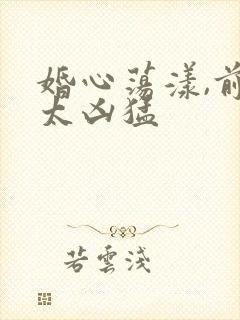 婚心荡漾,前
太凶猛
若雲淺